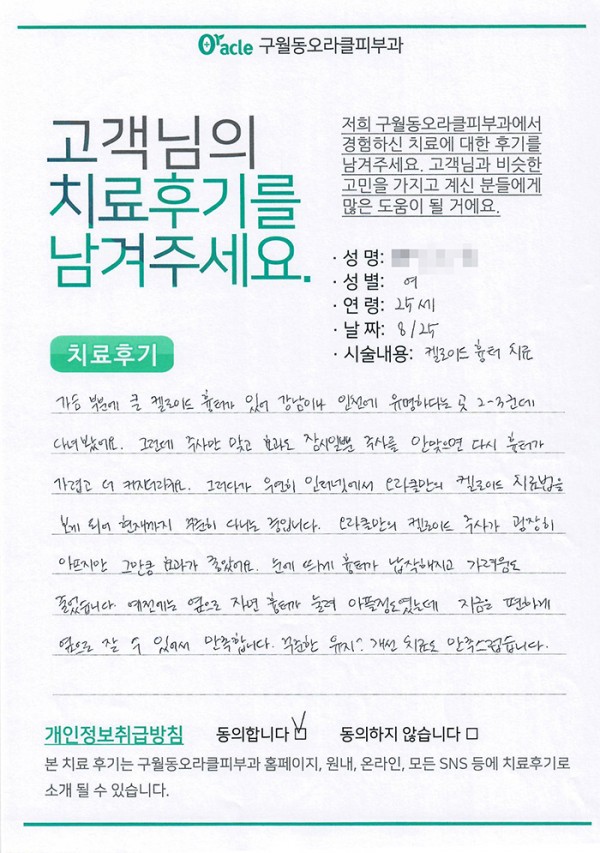 Oracle 구월동오라클피부과
고객님의
치료후기를
남겨주세요.
저희 구월동오라클피부과에서
경험하신 치료에 대한 후기를
남겨주세요. 고객님과 비슷한
고민을 가지고 계신 분들에게
많은 도움이 될 거에요.
· 성 명:
· 성 별: 여
· 연 령: 25세
· 날 짜: 8/25
· 시술내용: 켈로이드 흉터 치료
치료후기
가슴 부분에 큰 켈로이드 흉터가 있어 강남이나 인천에 유명하다는 곳 2-3군데
다녀봤어요. 그런데 주사만 맞고 효과도 잠시일뿐 주사를 안맞으면 다시 흉터가
가렵고 더 커지더라구요. 그러다가 우연히 인터넷에서 오라클만의 켈로이드 치료법을
보게 되어 현재까지 꾸준히 다니는 중입니다. 오라클만의 켈로이드 주사가 굉장히
아프지만 그만큼 효과가 좋았어요. 눈에 띄게 흉터가 납작해지고 가려움도
줄었습니다. 예전에는 옆으로 자면 흉터가 눌려 아플정도였는데 지금은 편하게
옆으로 잘 수 있어서 만족합니다. 꾸준한 유지? 개선 치료도 만족스럽습니다.
개인정보취급방침 동의합니다 ☑ 동의하지 않습니다 □
본 치료 후기는 구월동오라클피부과 홈페이지, 원내, 온라인, 모든 SNS 등에 치료후기로
소개 될 수 있습니다.